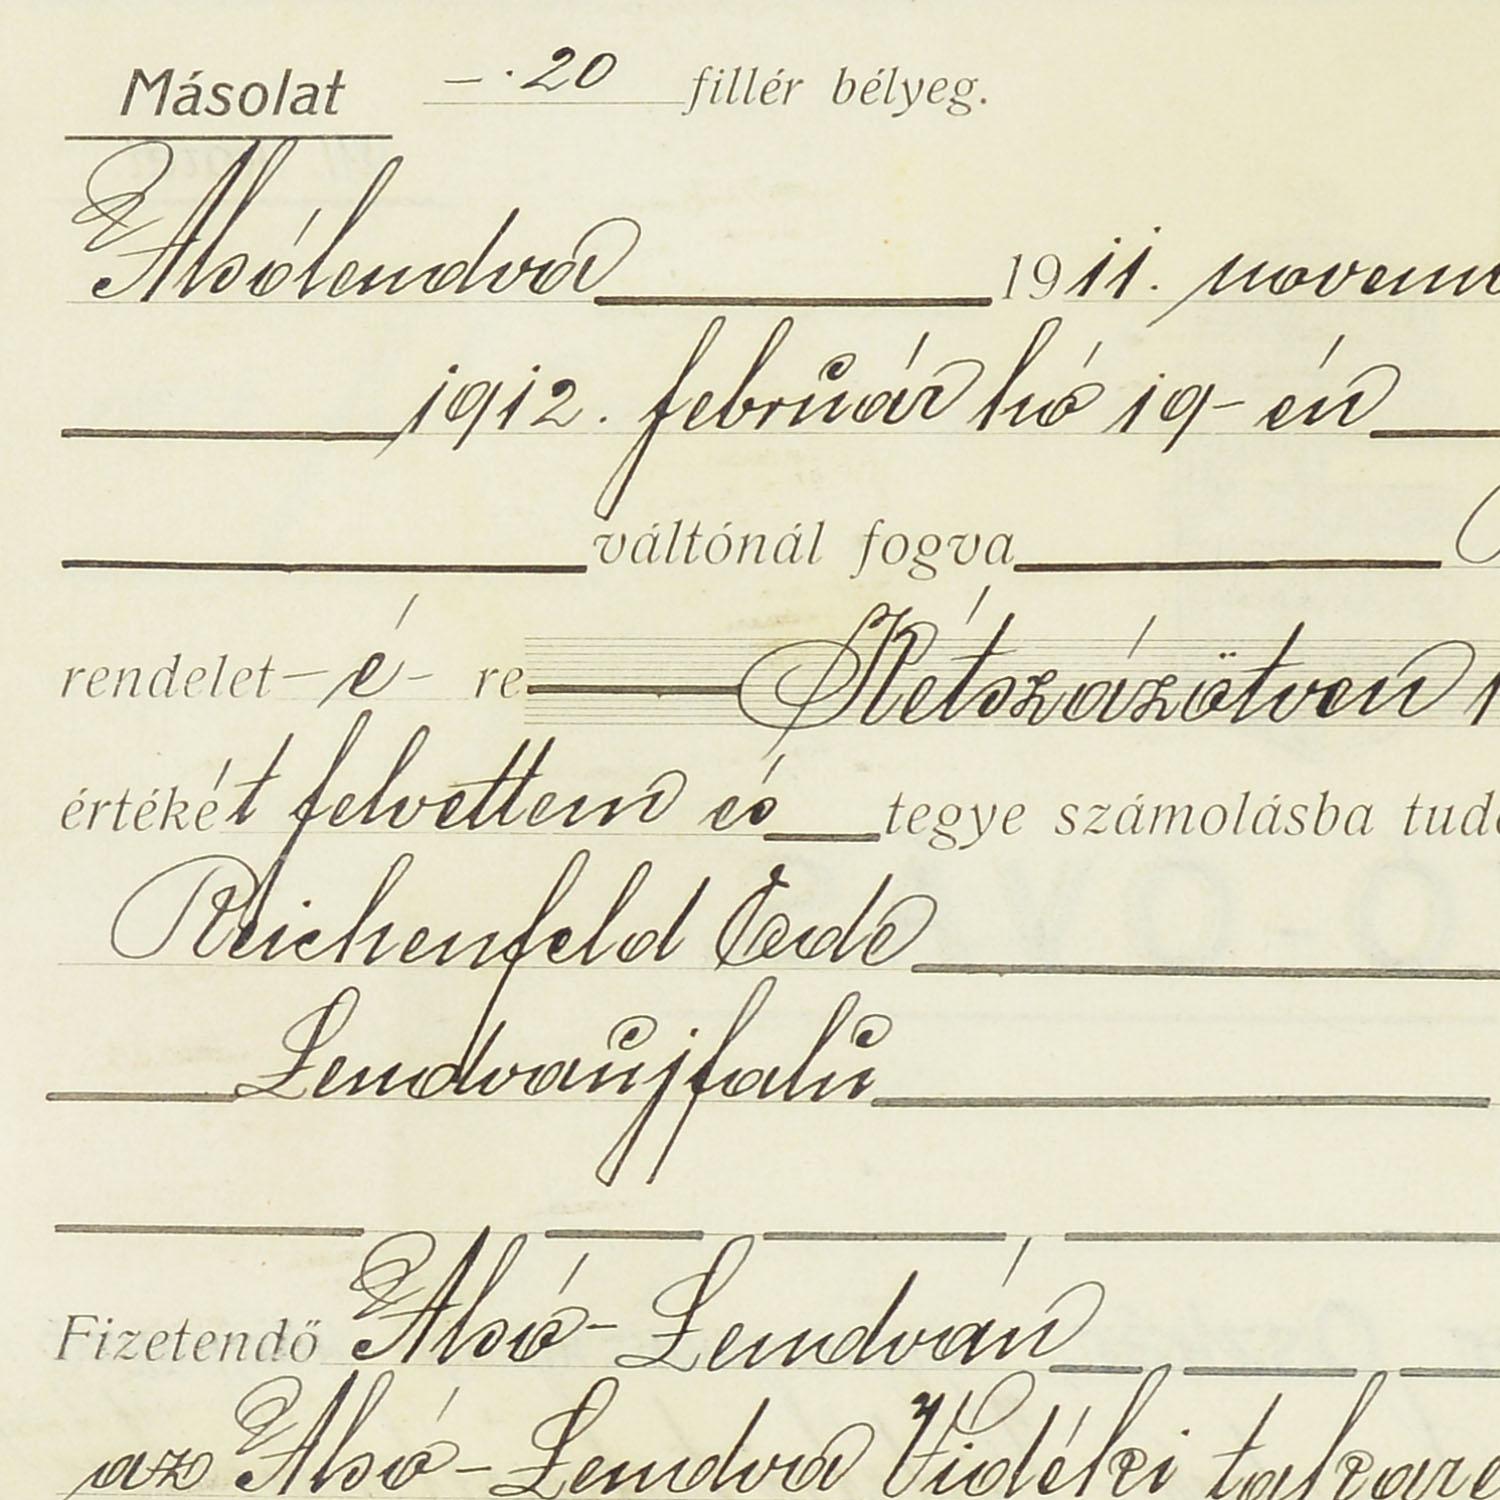 Másolat — . 20 fillér bélyeg.
Alsólendva 1911. novem
1912. február hó 19-én
váltónál fogva
rendelet - é - re Kétszázötven
értékét felvettem és tegye számolásba tud
Reichenfeld Ede
Lendvaujfalu
Fizetendő Alsó-Lendván
az Alsó-Lendva Vidéki takare